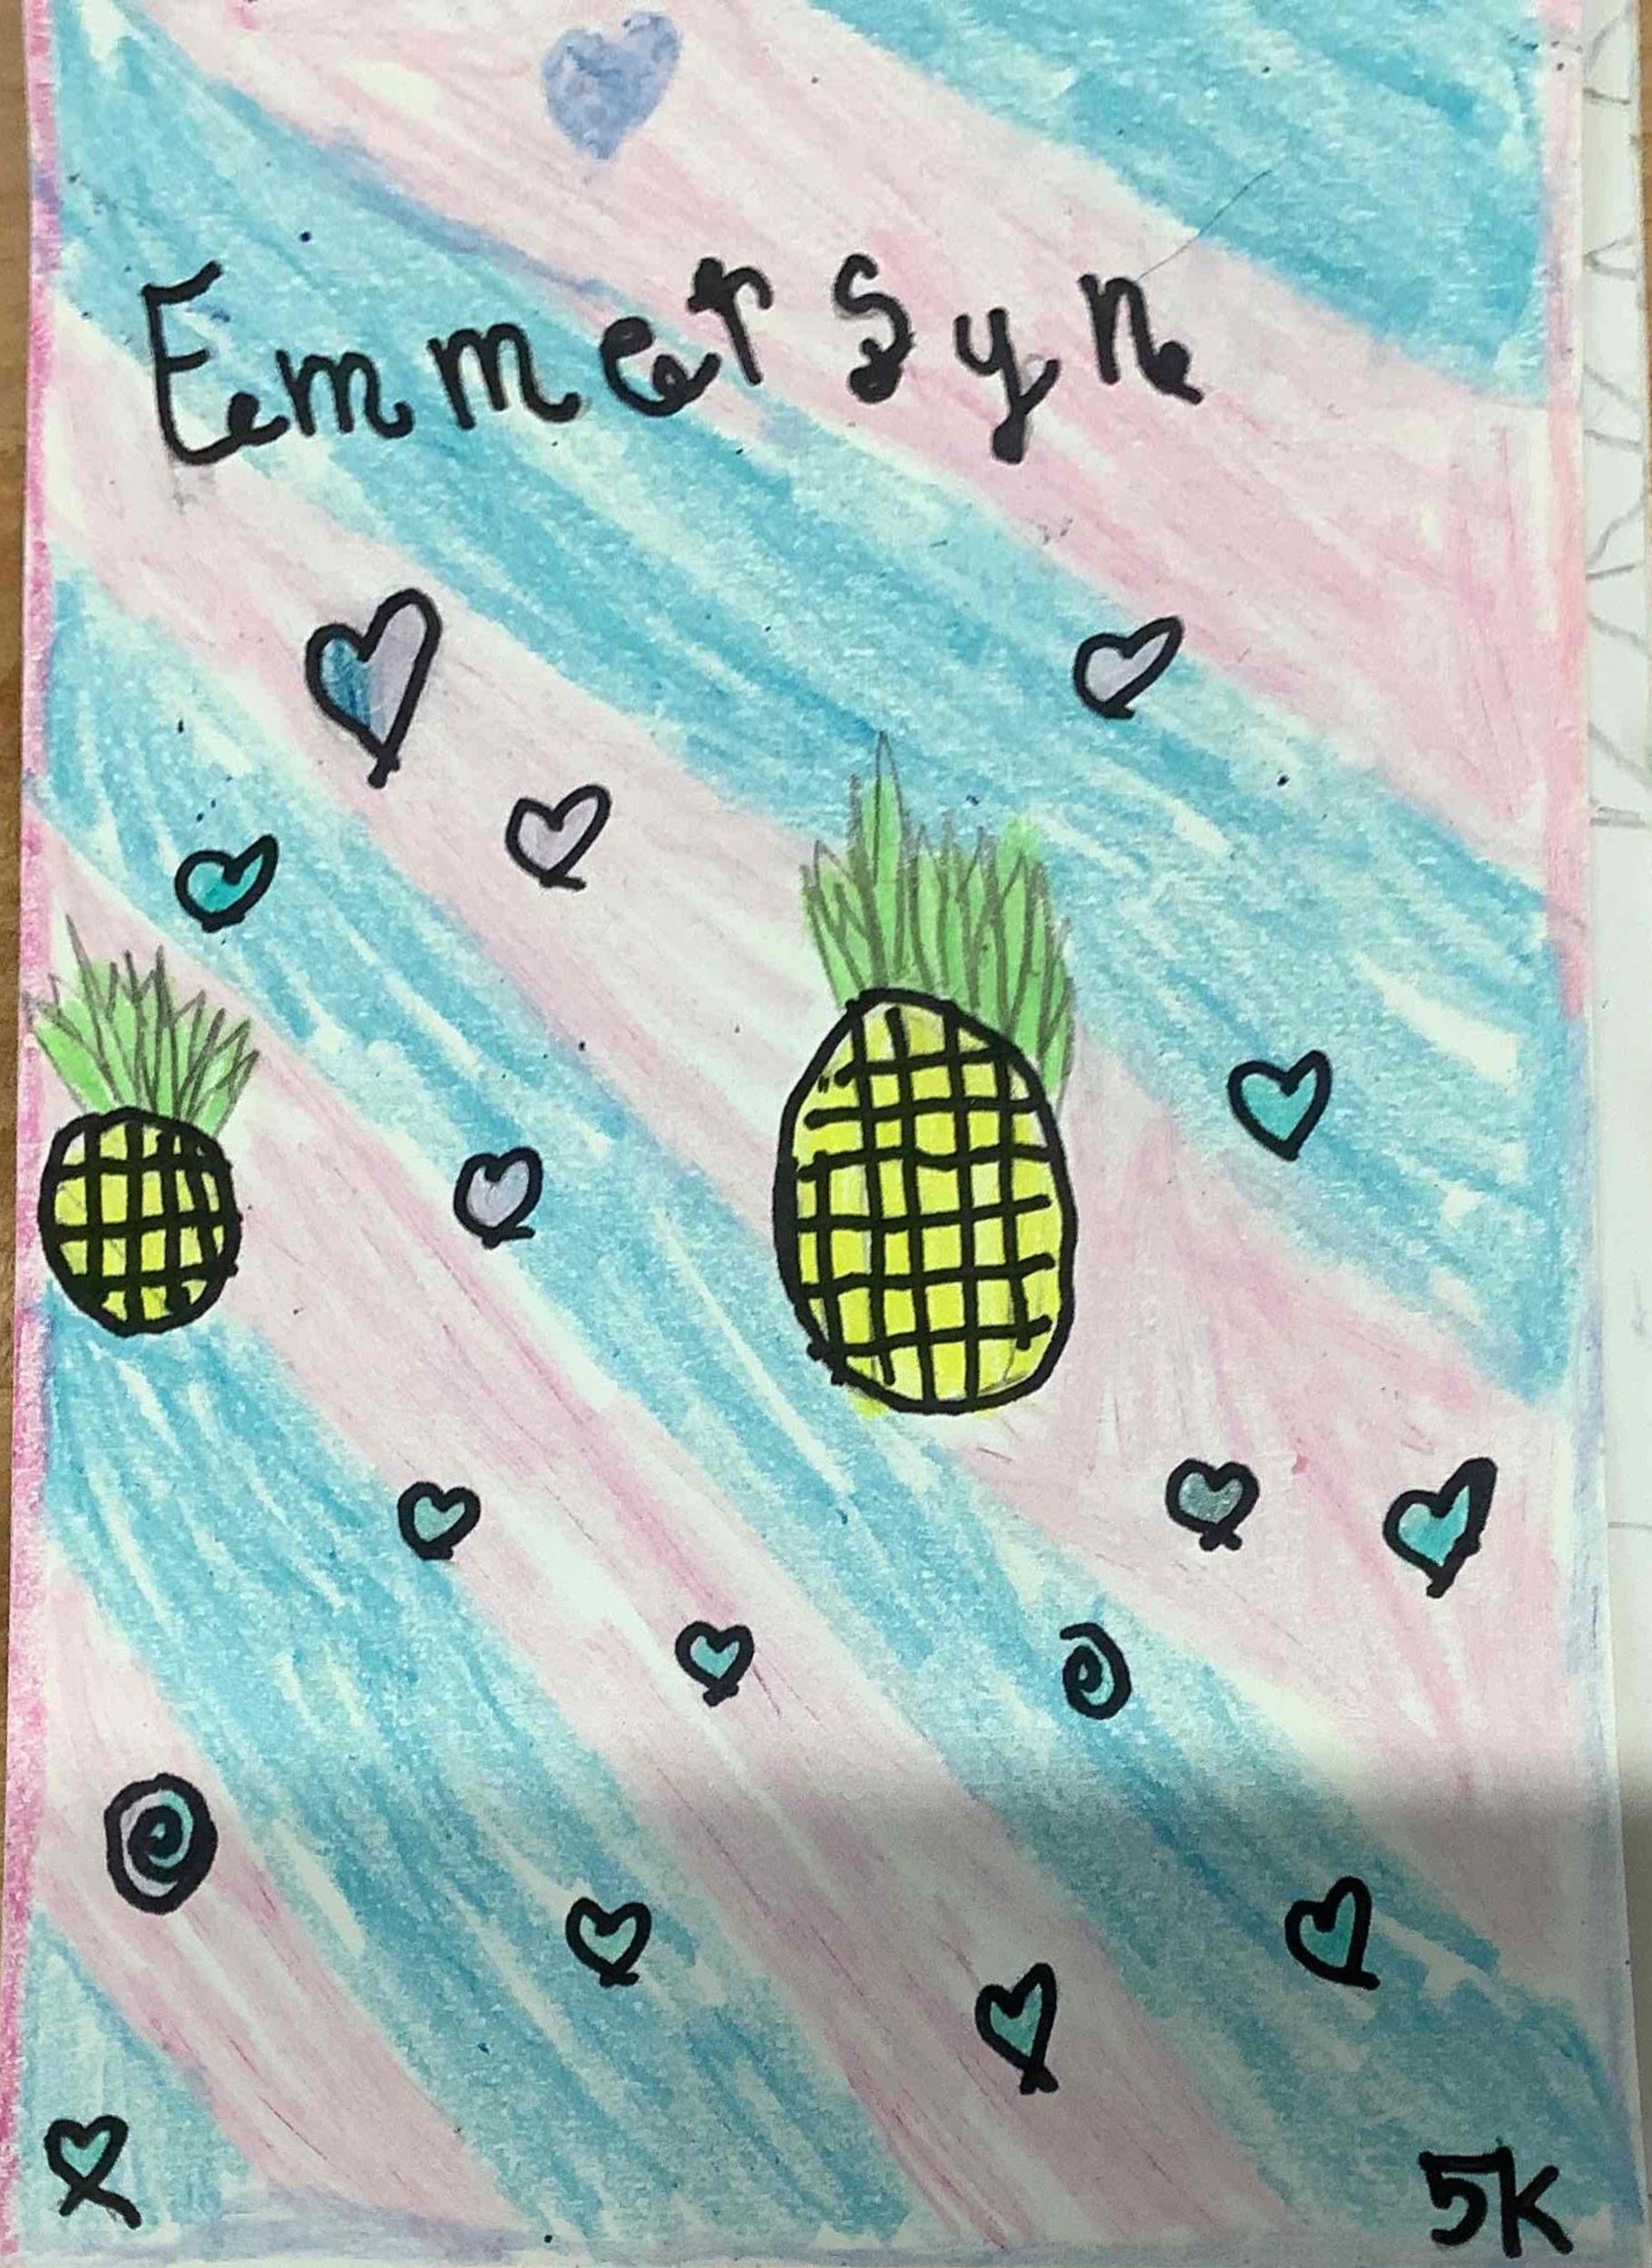 Emmersyn
5K